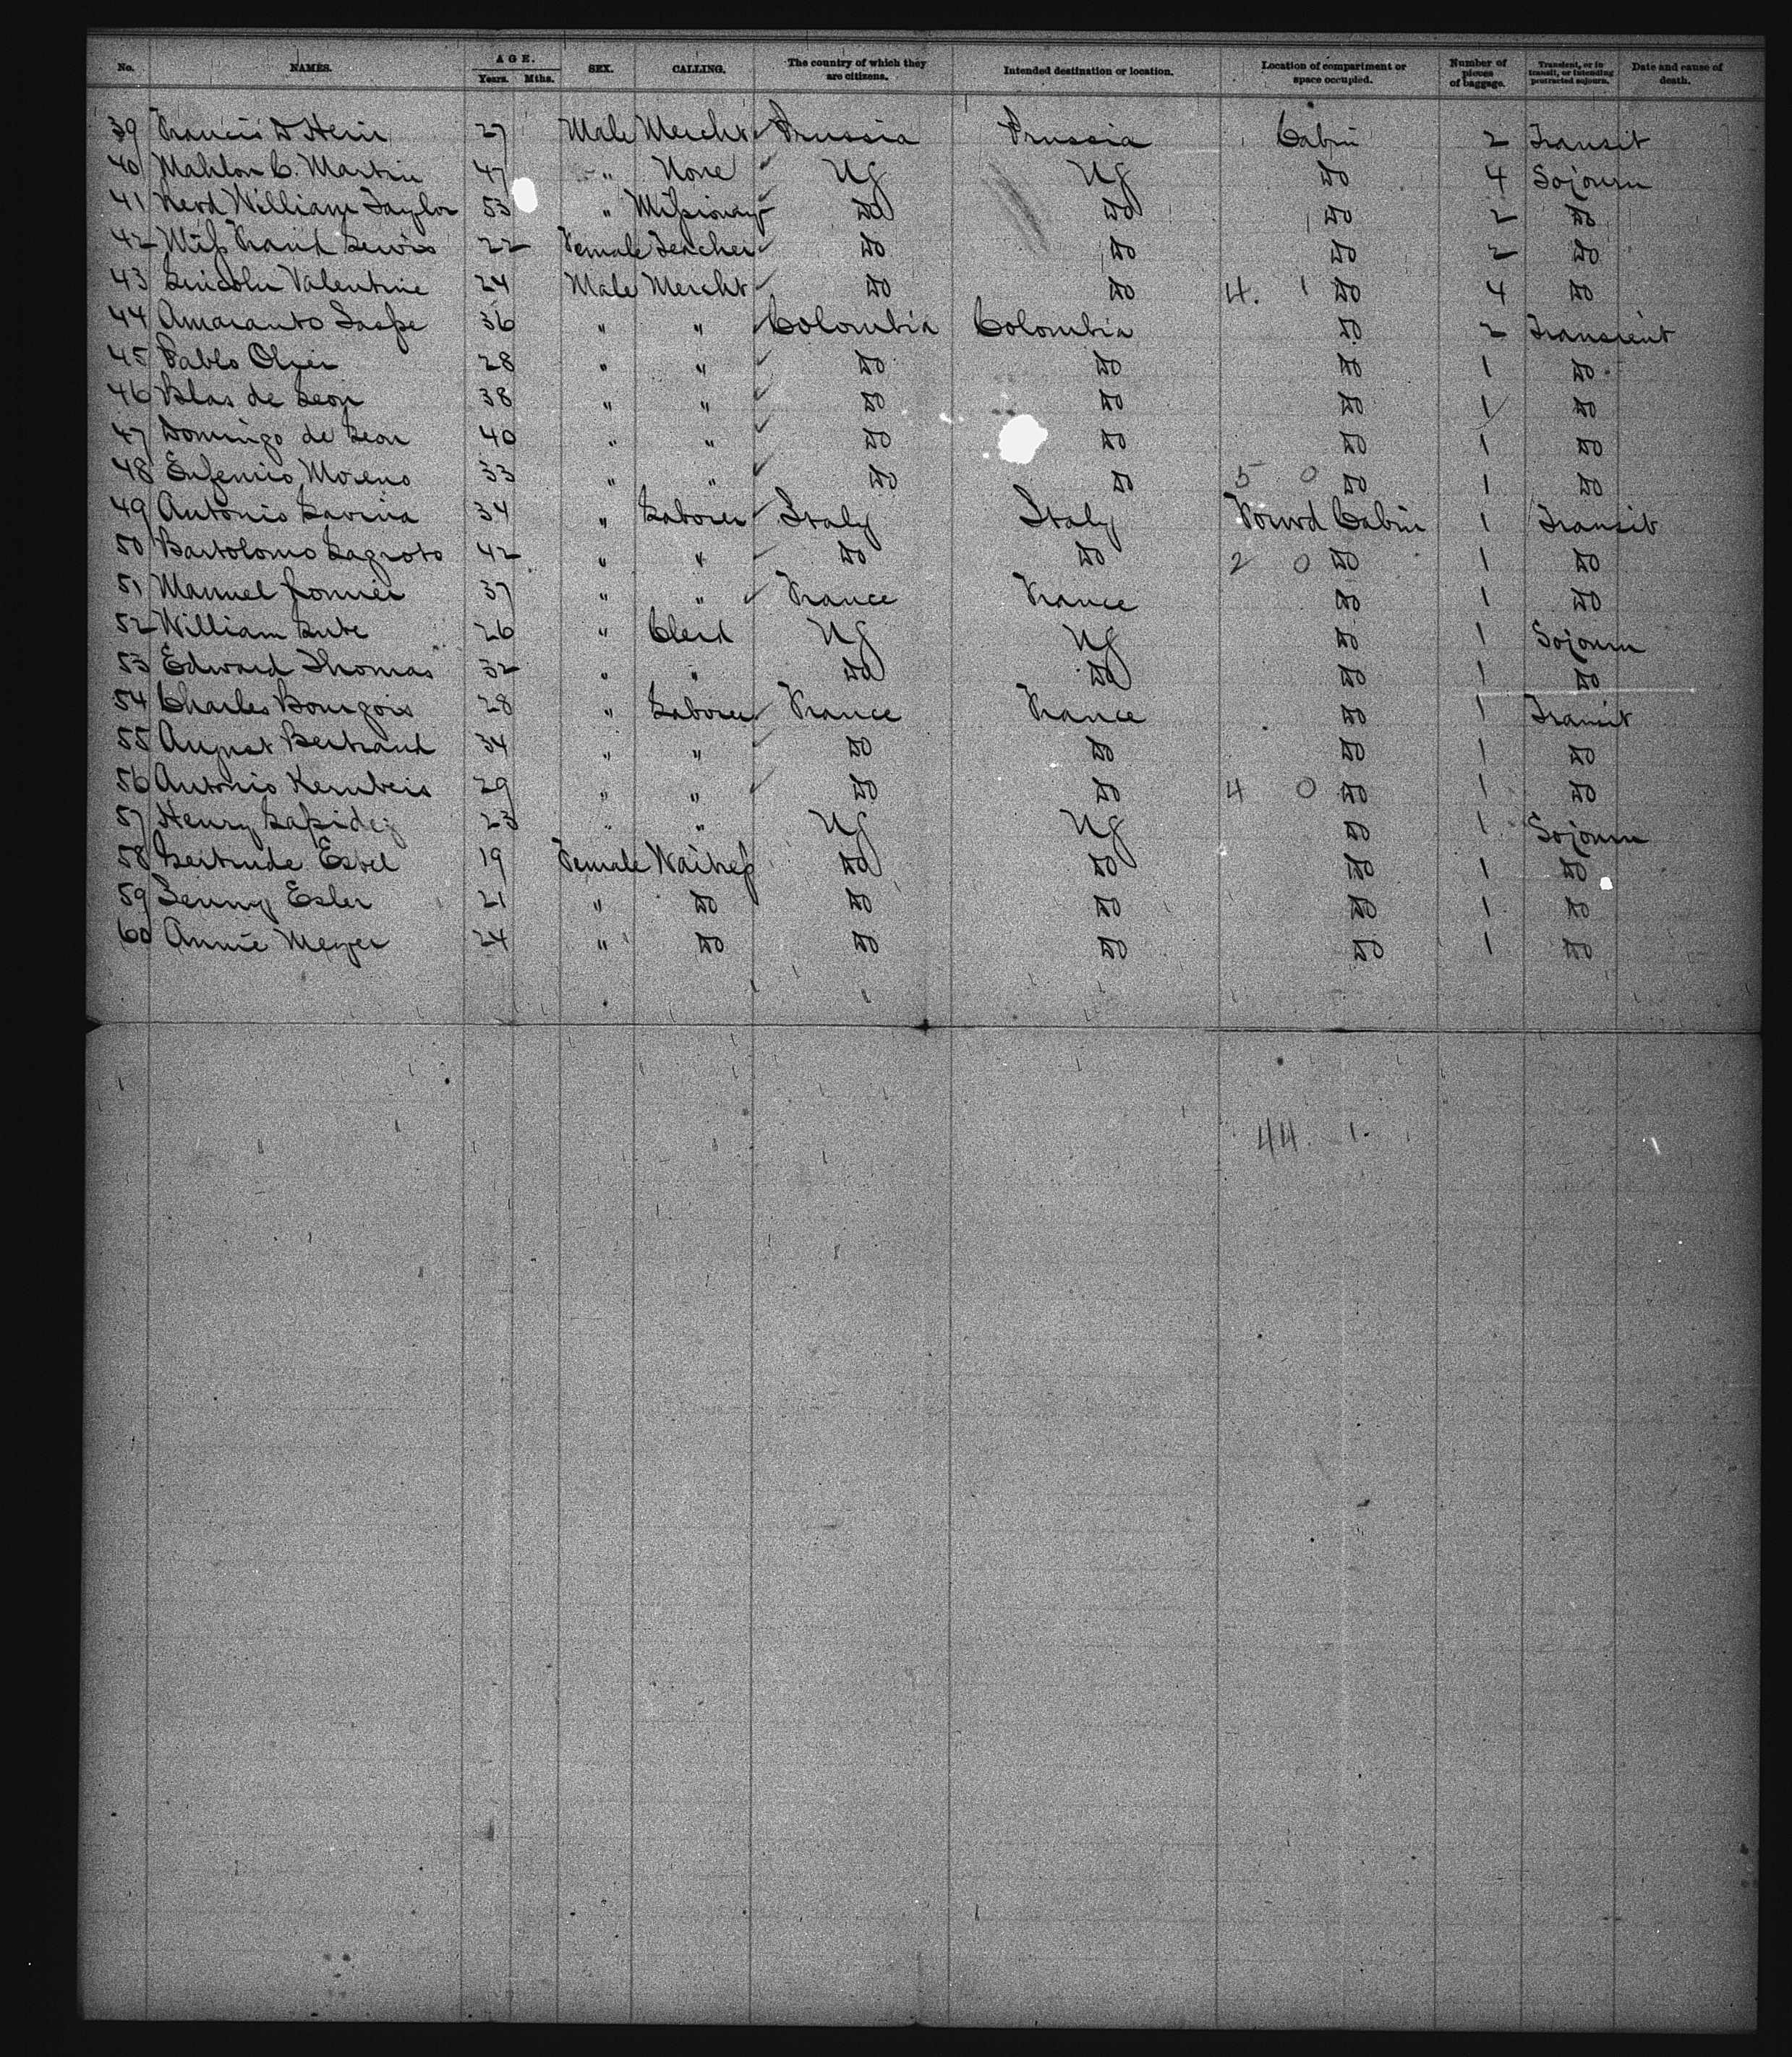 No. NAMES. AGE. Years. Mths. SEX. CALLING. The country of which they are citizens. Intended destination or location. Location of compartment or space occupied. Number of pieces of baggage. Transient, or in transit, or intending protracted sojourn. Date and cause of death.
39 Francis D Hein 27 Male Mercht Prussia Prussia Cabin 2 Transit
40 Mahlon C. Martin 47 " None US US Do 4 Sojourn
41 Revd William Taylor 53 " Missionary Do Do Do 2 Do
42 Miss Lewis 22 Female Teacher Do Do Do 2 Do
43 Lincoln Valentine 24 Male Mercht Do Do 4. 1 Do 4 Do
44 Amaranto Jaspe 36 " " Colombia Colombia Do 2 Transient
45 Pablo 28 " " Do Do Do 1 Do
46 Blas de Leon 38 " " Do Do Do 1 Do
47 Domingo de Leon 40 " " Do Do Do 1 Do
48 Eufemio Moreno 33 " " Do Do 5 0 Do 1 Do
49 Antonio Lavina 34 " Laborer Italy Italy Forwd Cabin 1 Transit
50 Bartolomo Lagroto 42 " " Do Do 2 0 Do 1 Do
51 Manuel 37 " " France France Do 1 Do
52 William Lube 26 " Clerk US US Do 1 Sojourn
53 Edward Thomas 32 " " Do Do Do 1 Do
54 Charles Bourgois 28 " Laborer France France Do 1 Transit
55 August Bertrand 34 " " Do Do Do 1 Do
56 Antonio 29 " " Do Do 4 0 Do 1 Do
57 Henry 23 " " US US Do 1 Sojourn
58 Gertrude 19 Female Waitress Do Do Do 1 Do
59 Jenny Esler 21 " Do Do Do Do 1 Do
60 Annie Meyer 24 " Do Do Do Do 1 Do
44. 1.